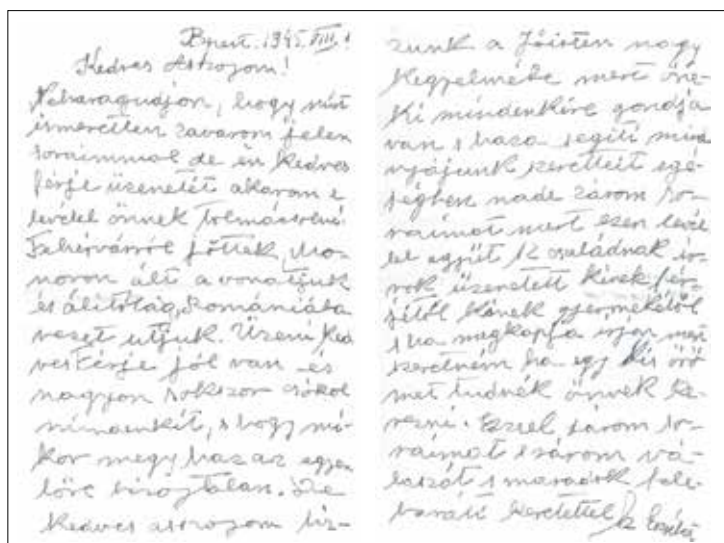 Bpest. 1945. VIII. 1
Kedves Asszonyom!
Neharagudjon, hogy mint
ismeretlen zavarom jelen
soraimmal de én kedves
férje üzenetét akarom e
levélel önnek tolmácsolni.
Fehérvárról jöttek, Mo-
noron ált a vonatjuk
és álitólag, Romániába
vezet utjuk. Üzeni Ked
ves férje jól van és
nagyon sokszor csókol
mindenkit, s hogy mi-
kor megy haza az egyen
lőre bizojtalan. De
Kedves asszonyom biz-
zunk a Jóisten nagy
kegyelmébe mert öne-
ki mindenkire gondja
van s haza segíti mind
nyájunk szeretteit egé-
ségben nade zárom so-
raimat mert ezen levél
lel együtt 12 családnak ir-
rok üzenetett kinek fér-
jétől kinek gyermekétől
s ha megkapja irjon mert
szeretném ha egy kis örö
met tudnék önnek sze-
rezni. Ezzel zárom so-
raimat s várom vá-
laszát s maradok isme-
szeretettel